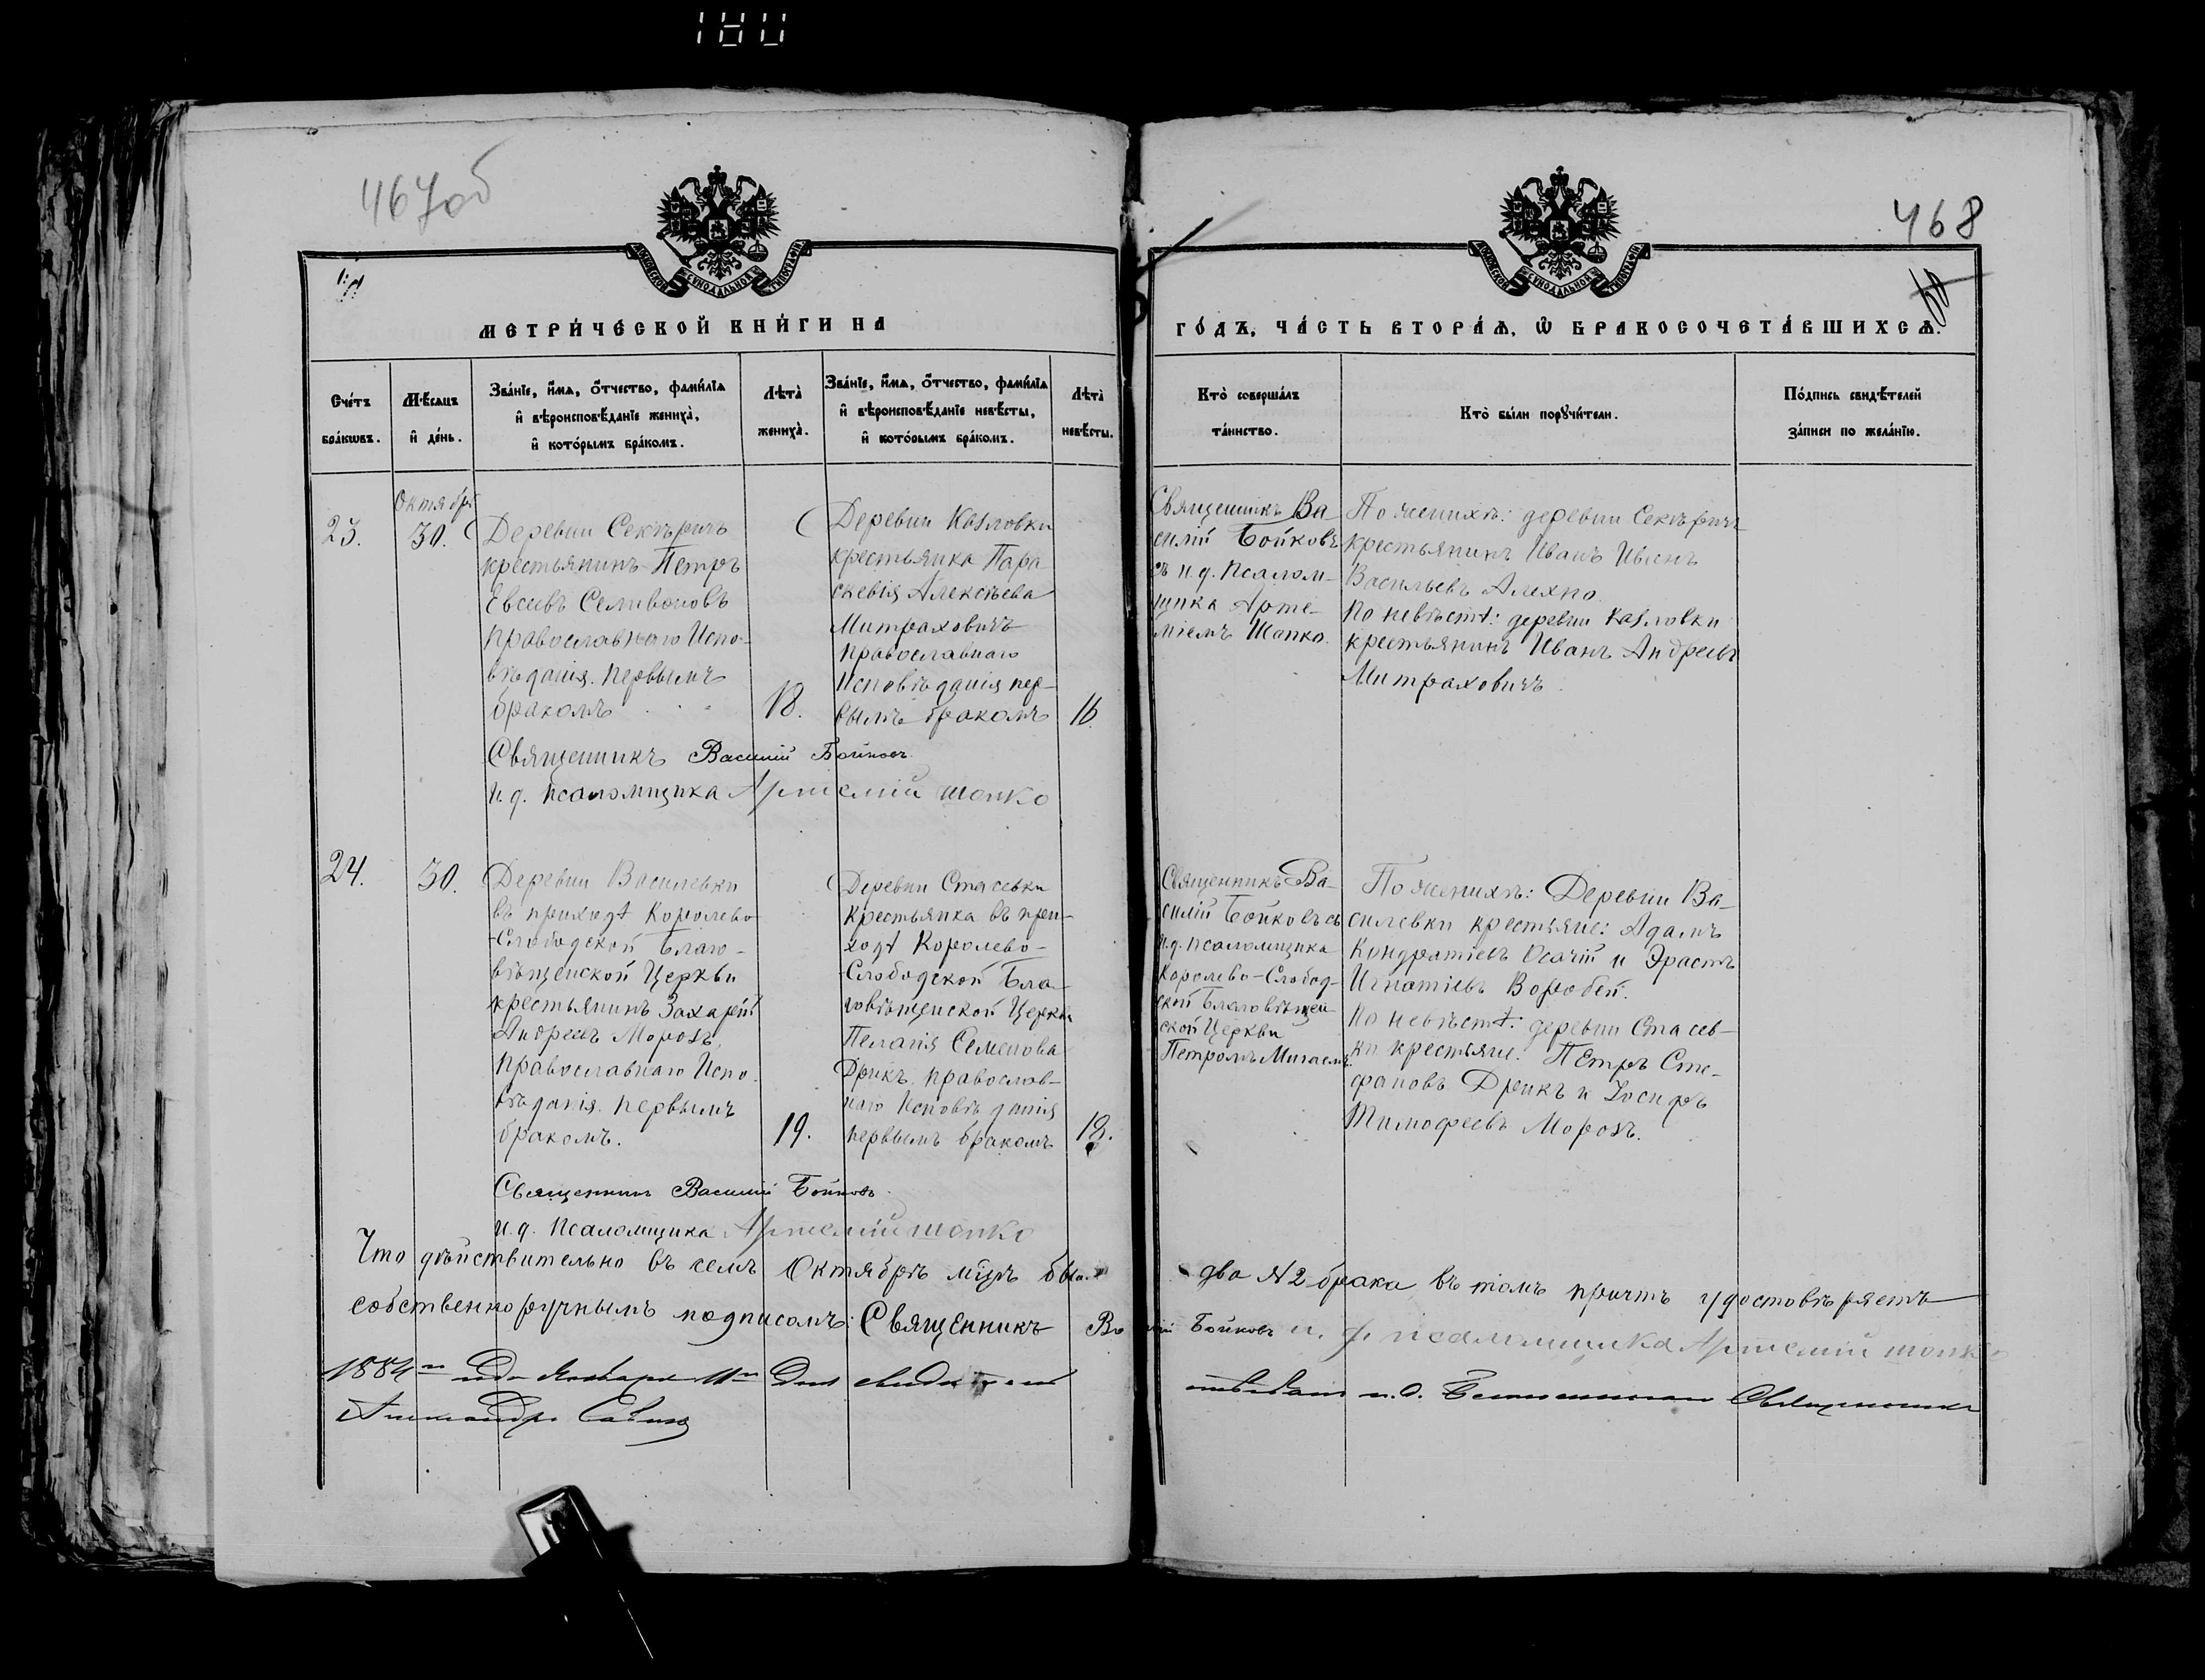 180
467об
468
МОСКОВСКОЙ СѴНОДАЛЬНОЙ ТИПОГРАФІИ
МОСКОВСКОЙ СѴНОДАЛЬНОЙ ТИПОГРАФІИ
60
МЕТРИ́ЧЕСКОЙ КНИ́ГИ НА
ГО́ДЪ, ЧА́СТЬ ВТОРА́Ѧ, Ѡ҆ БРАКОСОЧЕТА́ВШИХСѦ.
Сче́тъ
бра́кѡвъ.
Мѣ́сѧцъ
и҆ де́нь.
Зва́нїе, и҆́мѧ, ѻ҆́тчество, фами́лїѧ
и҆ вѣроисповѣ́данїе жениха̀,
и҆ кото́рымъ бра́комъ.
Лѣта̀
жениха̀.
Зва́нїе, и҆́мѧ, ѻ҆́тчество, фами́лїѧ
и҆ вѣроисповѣ́данїе невѣ́сты,
и҆ кото́рымъ бра́комъ.
Лѣта̀
невѣ́сты.
Кто̀ соверша́лъ
та́инство.
Кто̀ бы́ли порꙋчи́тели.
По́дпись свидѣ́телей
за́писи по жела́нїю.
23.
Октябрь
30.
Деревни Секѣричъ
крестьянинъ Петръ
Евсивъ Селивоновъ
православнаго Испо-
вѣданія. первымъ
бракомъ
18.
Деревни Казловки
крестьянка Пара
скевія Алексѣева
Митраховичъ
православнаго
Исповѣданія пер-
вымъ бракомъ
16.
Священникъ Ва
силій Бойковъ
съ и.д. Псалом-
щика Арте-
міемъ Шапко.
По женихѣ: деревни Секѣричъ
крестьянинъ Иванъ Ивановъ
Васильевъ Алехно.
По невѣстѣ: деревни Казловки
крестьянинъ Иванъ Андреевъ
Митраховичъ.
Священникъ Василій Бойковъ
И. д. псаломщика Артемій Шапко
24.
30.
Деревни Василевки
въ приходѣ Королево
-Слободской Благо-
вѣщенской Церкви
крестьянинъ Захарій
Андреевъ Морозъ,
православнаго Испо
вѣданія. первымъ
бракомъ.
19.
Деревни Стасевки
крестьянка въ при-
ходѣ Королево-
-Слободской Бла-
говѣщенской Церкви
Пелагія Семенова
Дрикъ, православ-
наго Исповѣданія
первымъ бракомъ
18.
Священникъ Ва-
силій Бойковъ съ
и.д. псаломщика
Королево-Слобод-
ской Благовѣщен
ской Церкви
Петромъ
По женихѣ: Деревни Ва-
силевки крестьяне: Адамъ
Кондратіевъ Осачій и Эрастъ
Игнатіевъ Воробей.
По невѣстѣ: деревни Стасев-
ки крестьяне. Петръ Сте-
фановъ Дрикъ и Іосифъ
Тимофеевъ Морозъ.
Священникъ Василій Бойковъ.
и.д. Псаломщика Артемій Шапко
Что дѣйствительно въ семъ Октябрѣ мцѣ было два № 2 брака въ томъ причтъ удостовѣряетъ
собственноручнымъ подписомъ: Священникъ Василій Бойковъ и. д. псаломщика Артемій Шапко
1884 года Января 11 дня и.д. Благочиннаго Священникъ
Александръ